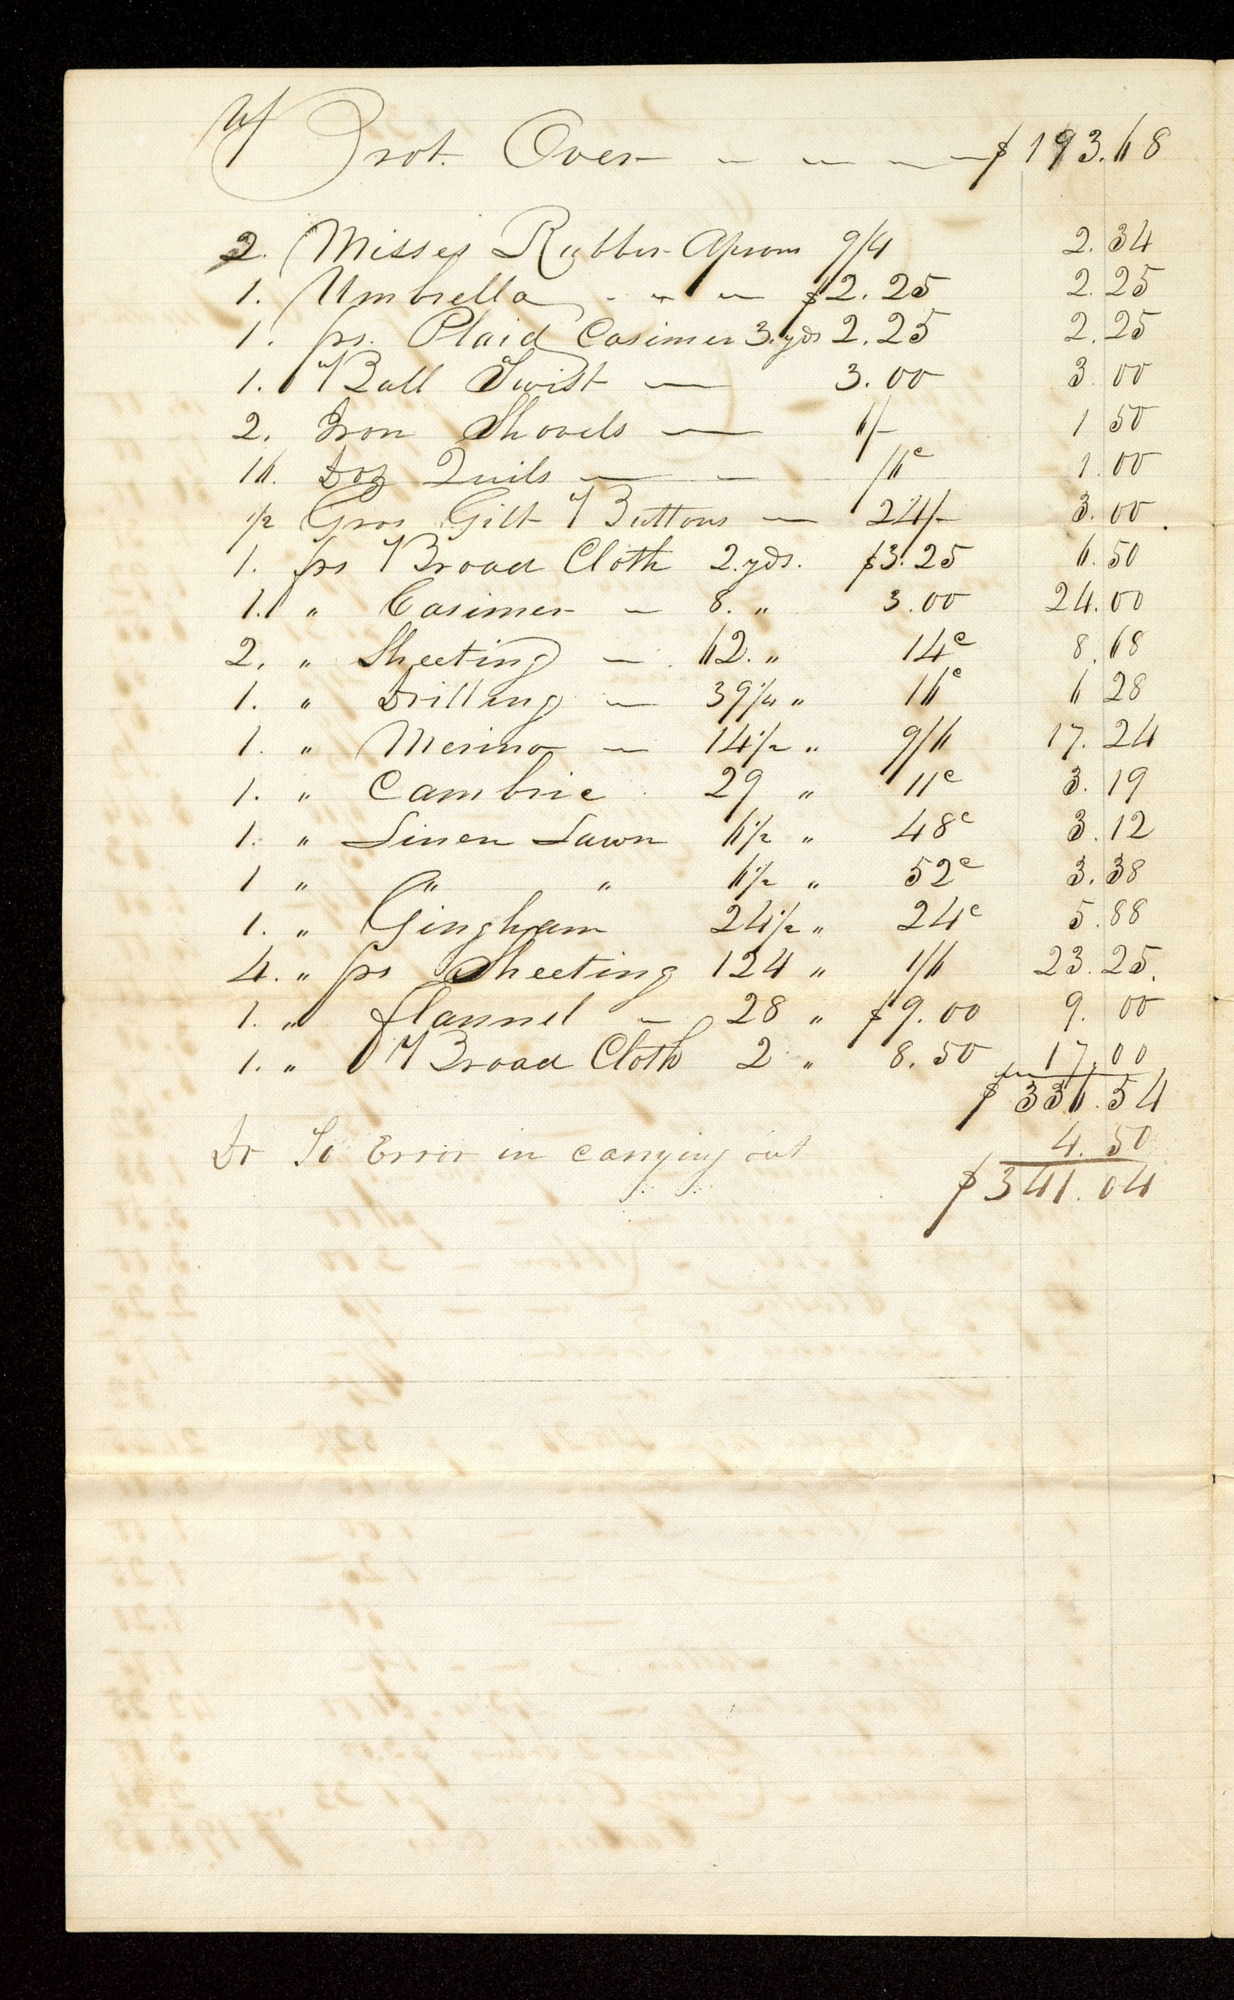 Brot. Over $193.68
2. Misses Rubber Aprons 9/4 2.34
1. Umbrella $2.25 2.25
1. ps. Plaid Casimer 3.yds 2.25 2.25
1. Ball Twist 3.00 3 00
2. Iron Shovels 6/- 1 50
16. Doz Quils /6c 1.00
1/2 Gros Gilt Buttons 24/- 3.00.
1. ps Broad Cloth 2.yds. $3.25 6.50
1. " Casimer 8. " 3.00 24.00
2. " Sheeting 62. " 14c 8.68
1. " Drilling 39 1/4 " 16c 6 28
1. " Merino 14 1/2 " 9/6 17.24
1. " Cambric 29 " 11c 3.19
1. " Linen Lawn 6 1/2 " 48c 3.12
1 " " " 6 1/2 " 52c 3.38
1. " Gingham 24 1/2 " 24c 5.88
4. " ps Sheeting 124 " 1/6 23.25.
1. " flannel 28 " $9.00 9.00
1. " Broad Cloth 2 " 8.50 17.00
$336.54
Dr To Error in carrying out 4.50
$341.04